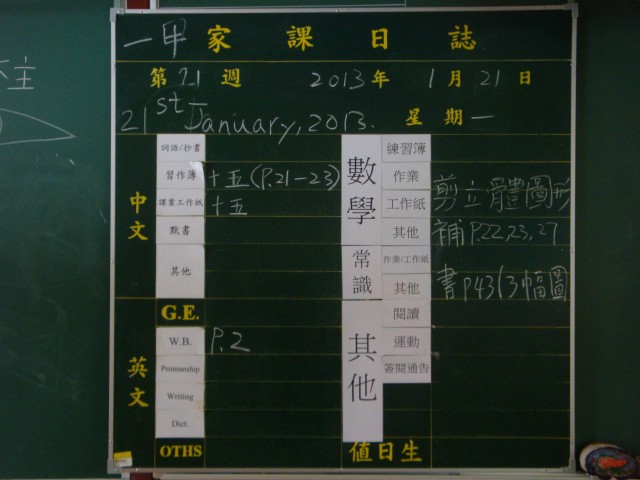 主
一甲 家課日誌
第 21 週 2013 年 1 月 21 日
21st January, 2013. 星期 一
中文
詞語/抄書
習作簿 十五(P.21-23)
課業工作紙 十五
默書
其他
G.E.
英文
W.B. P.2
Penmanship
Writing
Dict.
OTHS
數學
練習簿
作業 剪立體圖形
工作紙
其他 補P.22,23,27
常識
作業/工作紙
其他 書P43(3幅圖
其他
閱讀
運動
簽閱通告
值日生